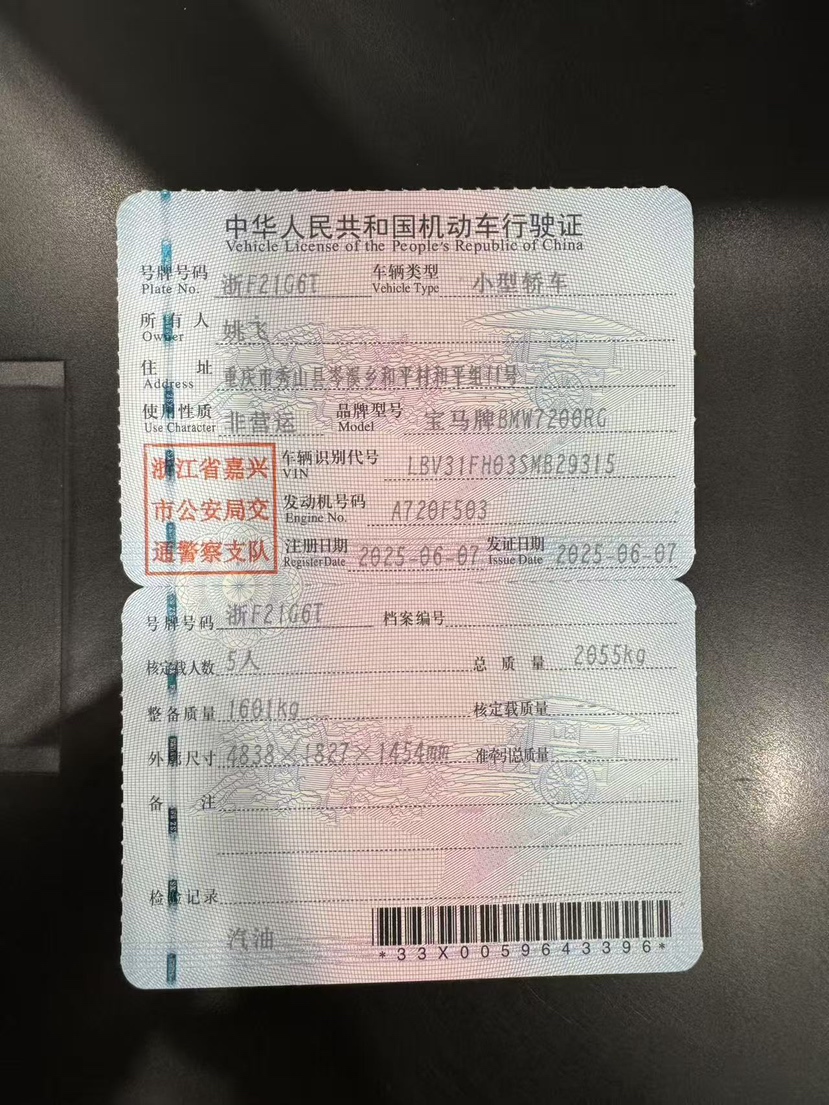 中华人民共和国机动车行驶证
Vehicle License of the People's Republic of China
号牌号码 浙F21G6T 车辆类型 小型轿车
Plate No. Vehicle Type
所有人 姚飞
Owner
住址 重庆市秀山县岑溪乡和平村和平组11号
Address
使用性质 非营运 品牌型号 宝马牌BMW7200RG
Use Character Model
浙江省嘉兴
市公安局交
通警察支队
车辆识别代号 LBV31FH03SMB29315
VIN
发动机号码 A720F503
Engine No.
注册日期 2025-06-07 发证日期 2025-06-07
Register Date Issue Date
号牌号码 浙F21G6T 档案编号
核定载人数 5人 总质量 2055kg
整备质量 1601kg 核定载质量 --
外廓尺寸 4838×1827×1454mm 准牵引总质量 --
备注
检验记录
汽油
*33X0059643396*